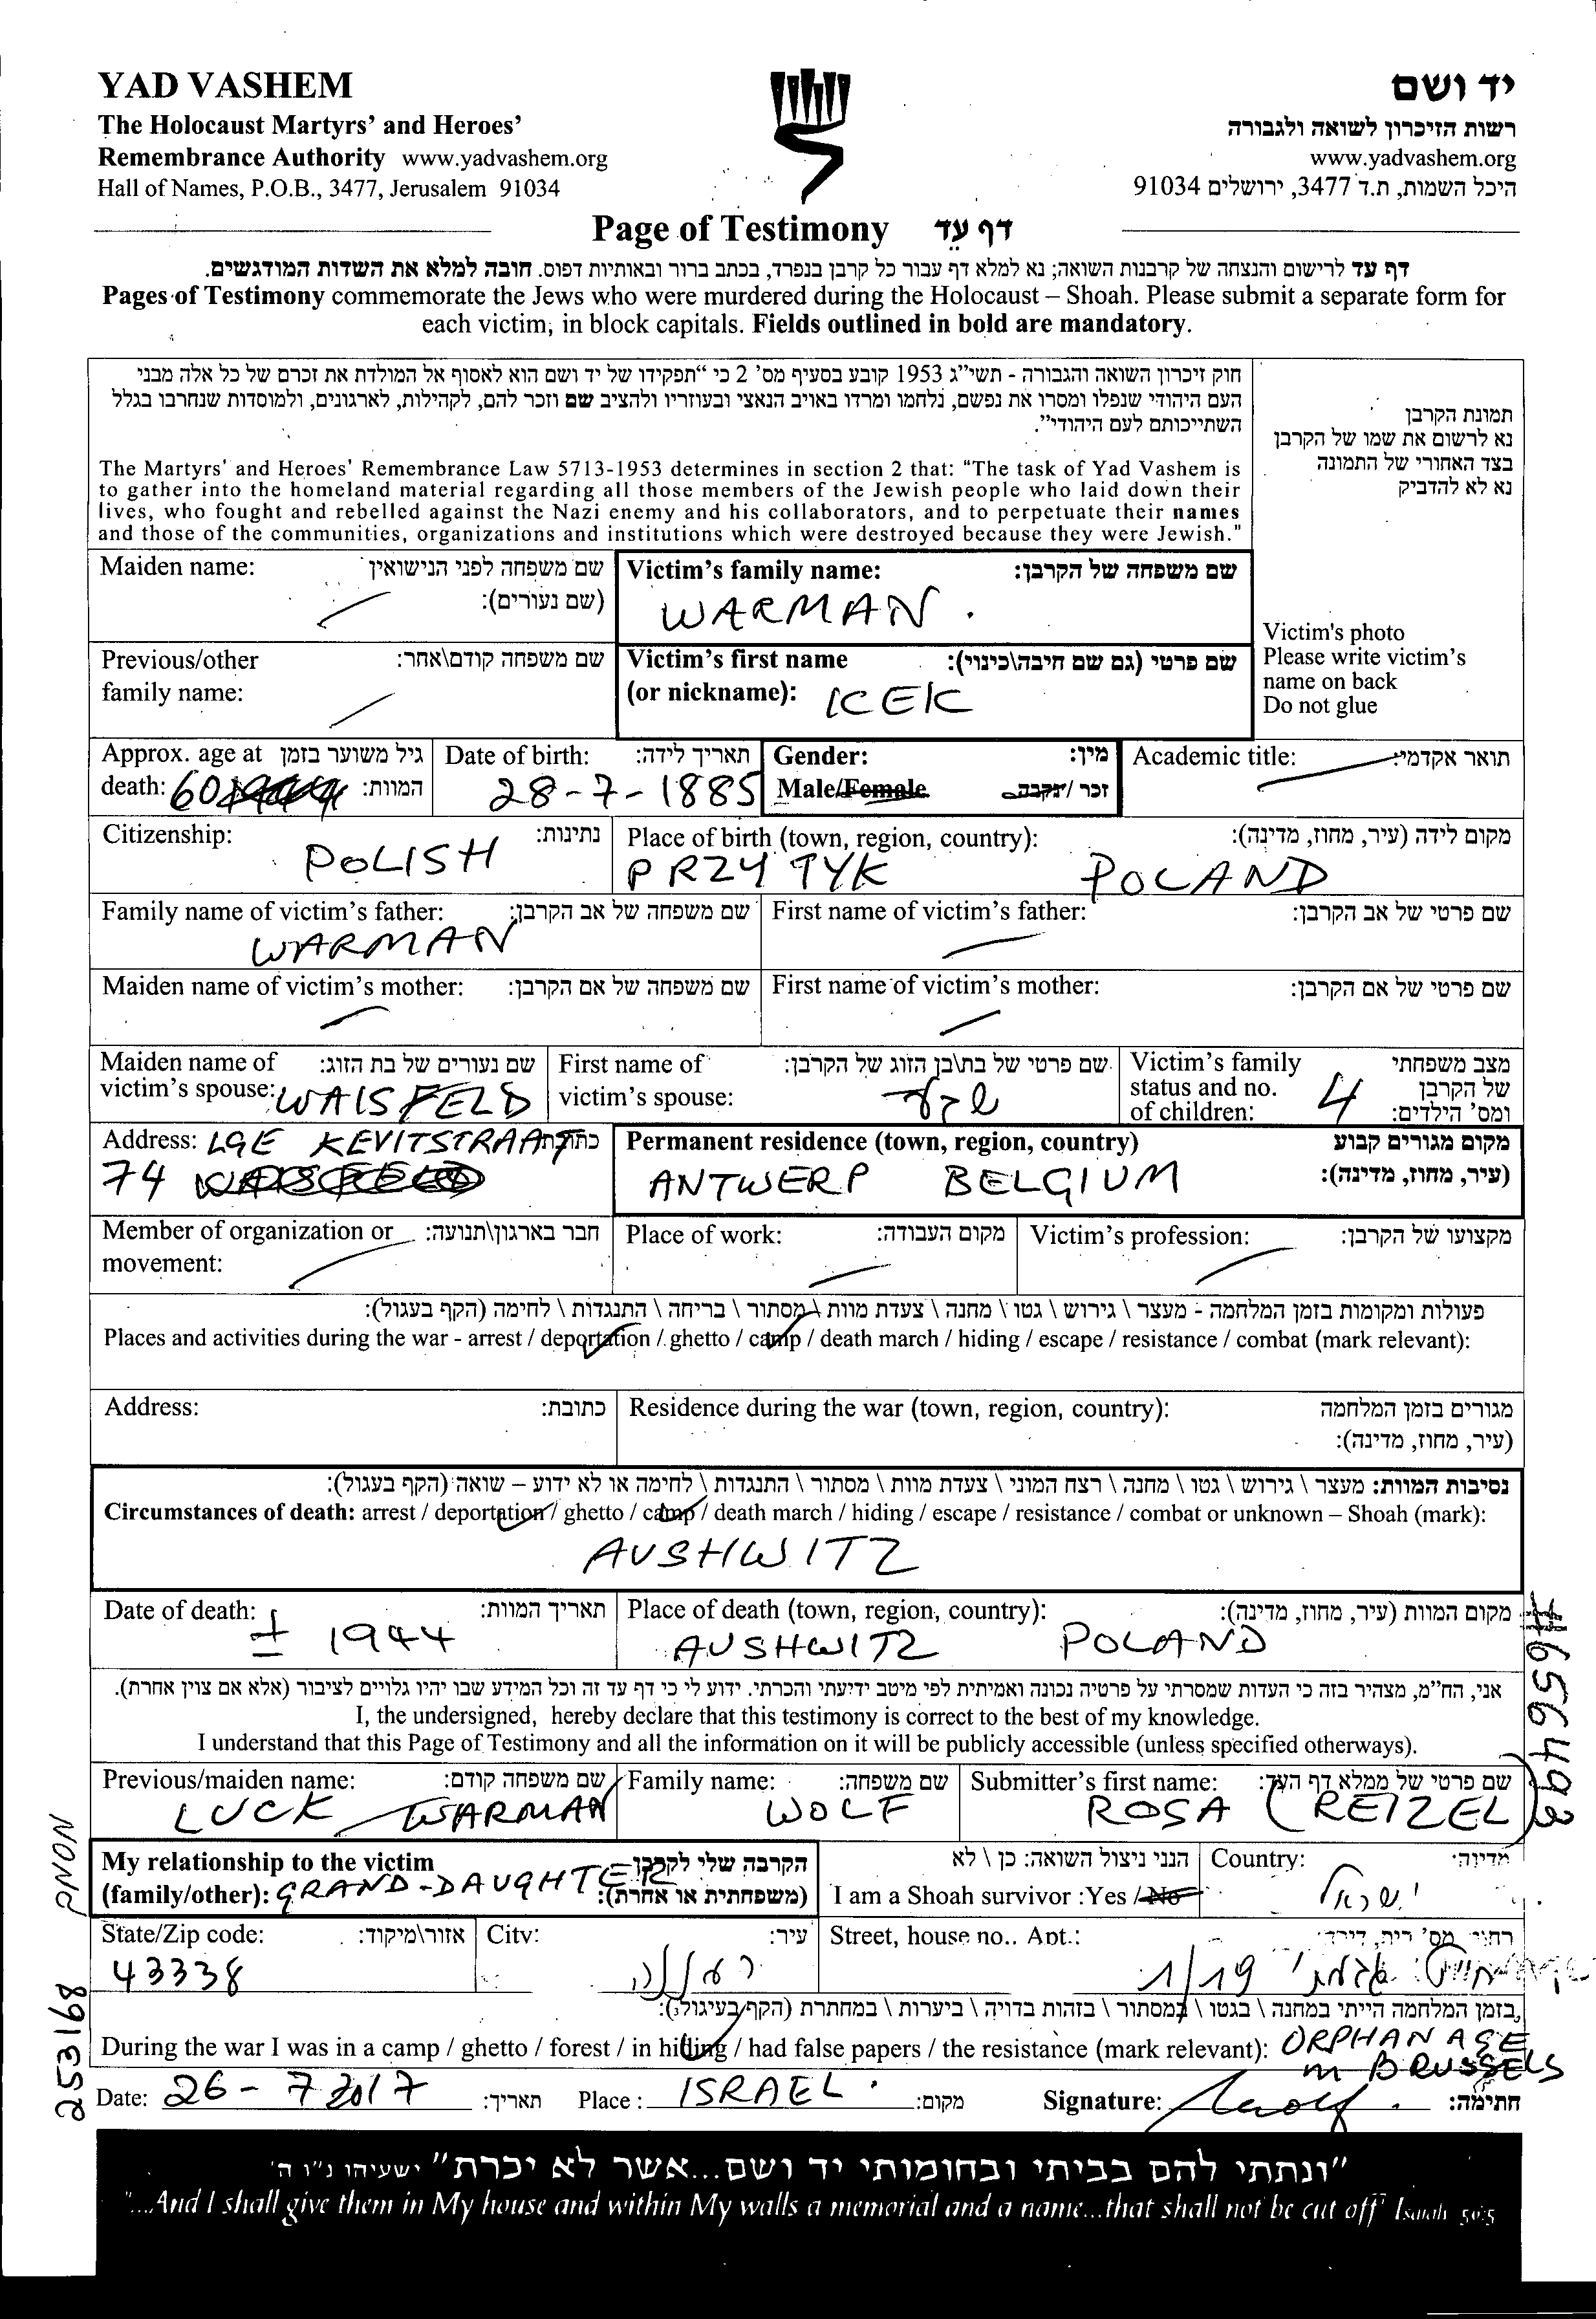 YAD VASHEM
The Holocaust Martyrs' and Heroes'
Remembrance Authority www.yadvashem.org
Hall of Names, P.O.B., 3477, Jerusalem 91034
יד ושם
רשות הזיכרון לשואה ולגבורה
www.yadvashem.org
היכל השמות, ת.ד 3477, ירושלים 91034
Page of Testimony דף עד
דף עד לרישום והנצחה של קרבנות השואה; נא למלא דף עבור כל קרבן בנפרד, בכתב ברור ובאותיות דפוס. חובה למלא את השדות המודגשים.
Pages of Testimony commemorate the Jews who were murdered during the Holocaust – Shoah. Please submit a separate form for
each victim, in block capitals. Fields outlined in bold are mandatory.
חוק זיכרון השואה והגבורה - תשי"ג 1953 קובע בסעיף מס' 2 כי "תפקידו של יד ושם הוא לאסוף אל המולדת את זכרם של כל אלה מבני
העם היהודי שנפלו ומסרו את נפשם, נלחמו ומרדו באויב הנאצי ובעוזריו ולהציב שם וזכר להם, לקהילות, לארגונים, ולמוסדות שנחרבו בגלל
השתייכותם לעם היהודי".
The Martyrs' and Heroes' Remembrance Law 5713-1953 determines in section 2 that: "The task of Yad Vashem is
to gather into the homeland material regarding all those members of the Jewish people who laid down their
lives, who fought and rebelled against the Nazi enemy and his collaborators, and to perpetuate their names
and those of the communities, organizations and institutions which were destroyed because they were Jewish."
תמונת הקרבן
נא לרשום את שמו של הקרבן
בצד האחורי של התמונה
נא לא להדביק
Victim's photo
Please write victim's
name on back
Do not glue
Maiden name: שם משפחה לפני הנישואין
(שם נעורים):
Victim's family name: שם משפחה של הקרבן:
WARMAN
Previous/other שם משפחה קודם\אחר:
family name:
Victim's first name שם פרטי (גם שם חיבה\כינוי):
(or nickname): ICEK
Approx. age at גיל משוער בזמן
death: 60 המוות:
Date of birth: תאריך לידה:
28-7-1885
Gender: מין:
Male/Female זכר / נקבה
Academic title: תואר אקדמי:
Citizenship: נתינות:
POLISH
Place of birth (town, region, country): מקום לידה (עיר, מחוז, מדינה):
PRZYTYK POLAND
Family name of victim's father: שם משפחה של אב הקרבן:
WARMAN
First name of victim's father: שם פרטי של אב הקרבן:
Maiden name of victim's mother: שם משפחה של אם הקרבן:
First name of victim's mother: שם פרטי של אם הקרבן:
Maiden name of שם נעורים של בת הזוג:
victim's spouse: WAISFELD
First name of שם פרטי של בת\בן הזוג של הקרבן:
victim's spouse:
Victim's family מצב משפחתי
status and no. של הקרבן
of children: 4 ומס' הילדים:
Address: LGE KEVITSTRAAT כתובת:
74
Permanent residence (town, region, country) מקום מגורים קבוע
ANTWERP BELGIUM (עיר, מחוז, מדינה):
Member of organization or חבר בארגון\תנועה:
movement:
Place of work: מקום העבודה:
Victim's profession: מקצועו של הקרבן:
פעולות ומקומות בזמן המלחמה - מעצר \ גירוש \ גטו \ מחנה \ צעדת מוות \ מסתור \ בריחה \ התנגדות \ לחימה (הקף בעגול):
Places and activities during the war - arrest / deportation / ghetto / camp / death march / hiding / escape / resistance / combat (mark relevant):
Address: כתובת:
Residence during the war (town, region, country): מגורים בזמן המלחמה
(עיר, מחוז, מדינה):
נסיבות המוות: מעצר \ גירוש \ גטו \ מחנה \ רצח המוני \ צעדת מוות \ מסתור \ התנגדות \ לחימה או לא ידוע – שואה (הקף בעגול):
Circumstances of death: arrest / deportation / ghetto / camp / death march / hiding / escape / resistance / combat or unknown – Shoah (mark):
AUSHWITZ
Date of death: תאריך המוות:
± 1944
Place of death (town, region, country): מקום המוות (עיר, מחוז, מדינה):
AUSHWITZ POLAND
אני, הח"מ, מצהיר בזה כי העדות שמסרתי על פרטיה נכונה ואמיתית לפי מיטב ידיעתי והכרתי. ידוע לי כי דף עד זה וכל המידע שבו יהיו גלויים לציבור (אלא אם צוין אחרת).
I, the undersigned, hereby declare that this testimony is correct to the best of my knowledge.
I understand that this Page of Testimony and all the information on it will be publicly accessible (unless specified otherways).
Previous/maiden name: שם משפחה קודם:
LUCK WARMAN
Family name: שם משפחה:
WOLF
Submitter's first name: שם פרטי של ממלא דף העד:
ROSA (REIZEL)
My relationship to the victim הקרבה שלי לקרבן
(family/other): GRAND-DAUGHTER (משפחתית או אחרת):
הנני ניצול השואה: כן \ לא
I am a Shoah survivor :Yes / No
Country: מדינה:
ישראל
State/Zip code: אזור\מיקוד:
43338
City: עיר:
רעננה
Street, house no.. Apt.: רחוב, מס' בית, דירה:
1/19
בזמן המלחמה הייתי במחנה \ בגטו \ במסתור \ בזהות בדויה \ ביערות \ במחתרת (הקף בעיגול):
During the war I was in a camp / ghetto / forest / in hiding / had false papers / the resistance (mark relevant): ORPHANAGE
in BRUSSELS
Date: 26-7 2017 תאריך: Place : ISRAEL. מקום: Signature: חתימה:
"ונתתי להם בביתי ובחומותי יד ושם...אשר לא יכרת" ישעיהו נ"ו ה'
"...And I shall give them in My house and within My walls a memorial and a name...that shall not be cut off" Isaiah 56:5
#656492
2553168